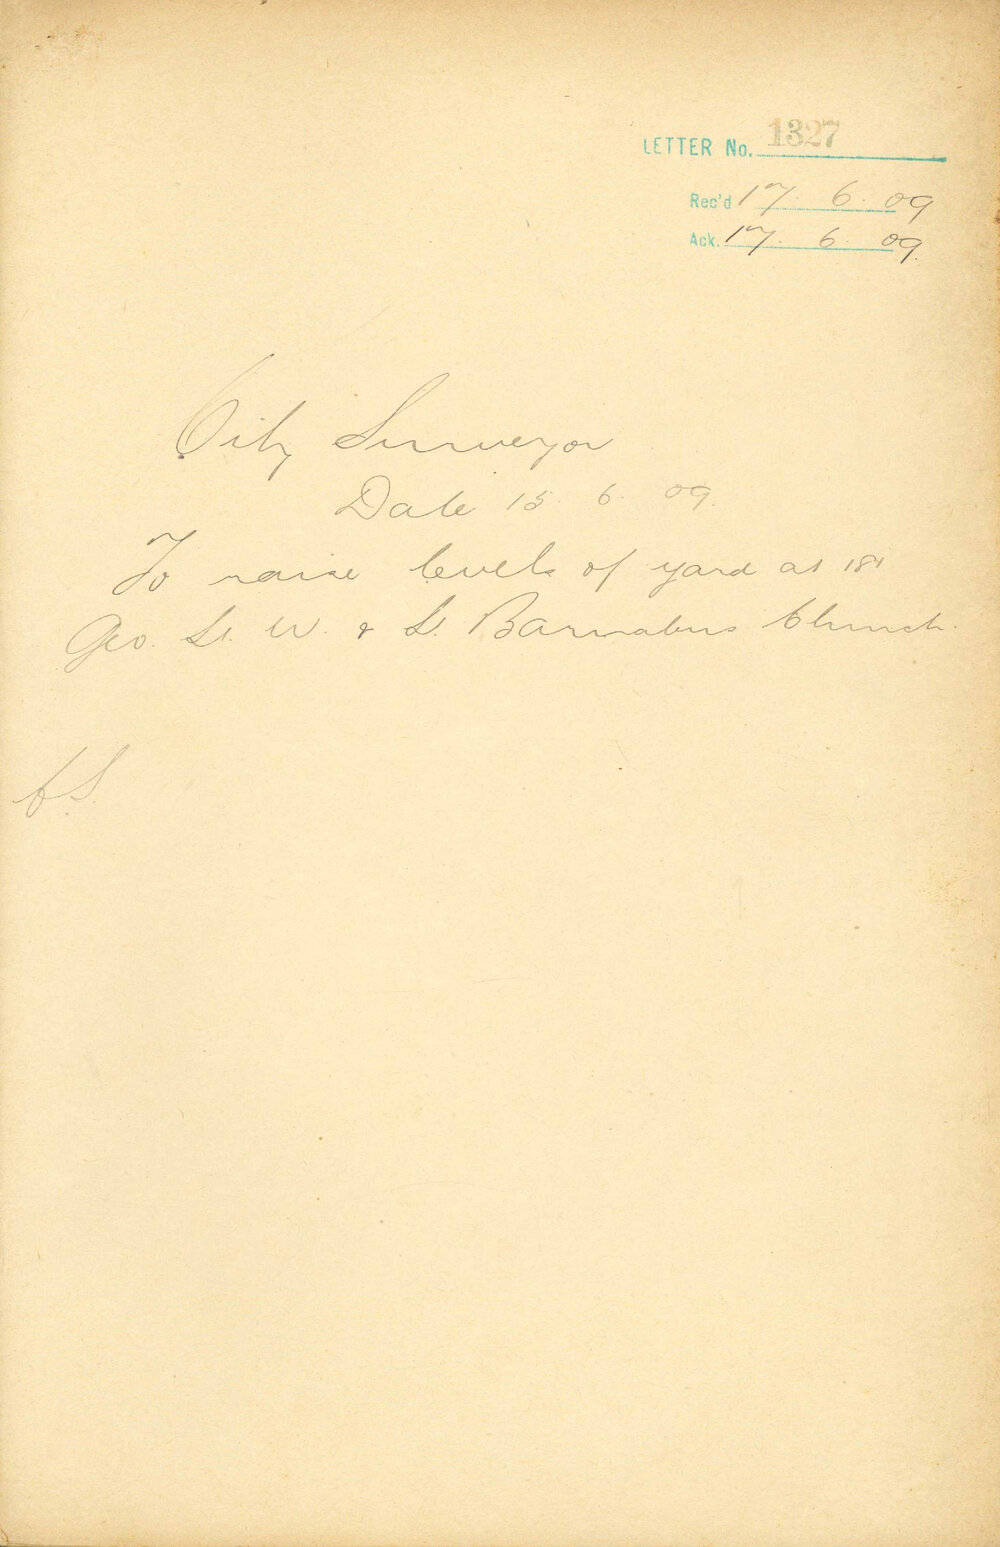 LETTER No. 1327
Rec'd 17. 6. 09
Ack. 17. 6 09.
City Surveyor
Date 15. 6. 09.
To raise levels of yard at 181
Geo. St. W. & St. Barnabus Church.